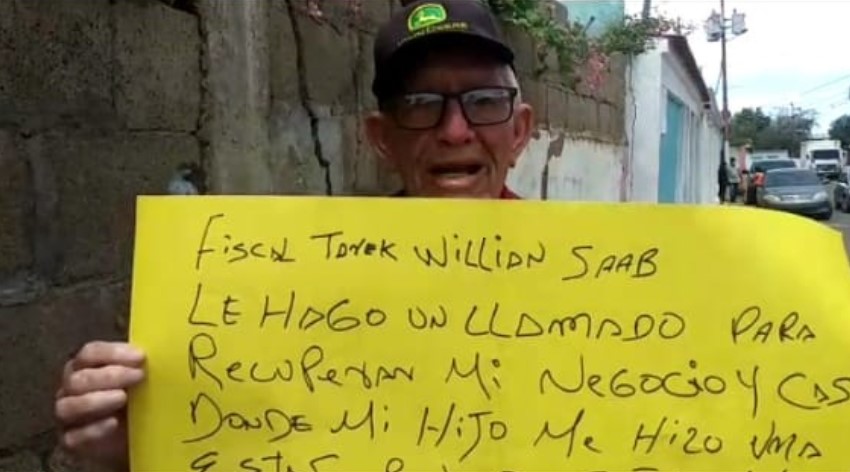 JOHN DEERE
Fiscal Tarek Willian SAAB
LE HAGO UN LLAMADO PARA
Recuperar Mi Negocio Y CAS
DONDE Mi HiJO Me HiZO UMA